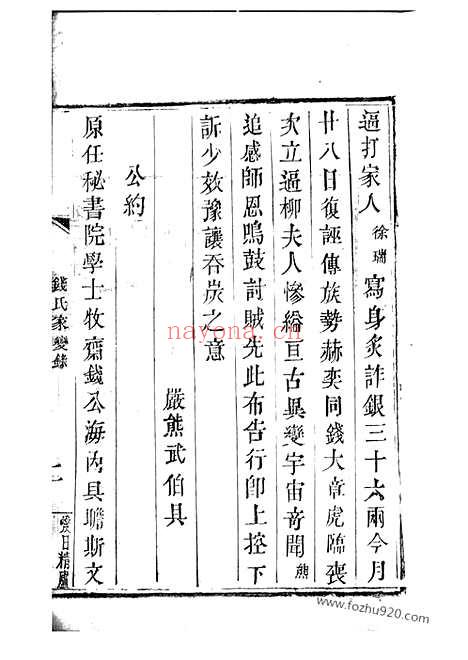 逼打家人徐瑞寫身炙詐銀三十六兩今月
廿八日復誣傳族勢赫奕同錢大章虎臨喪
次立逼柳夫人慘縊亘古異變宇宙奇聞熊
追感師恩鳴鼓討賊先此布告行卽上控下
訴少效豫讓吞炭之意
嚴熊武伯具
公約
原任秘書院學士牧齋錢公海內具瞻斯文
錢氏家變錄
二
愛日精廬
nayona.cn
www.fozhu920.com